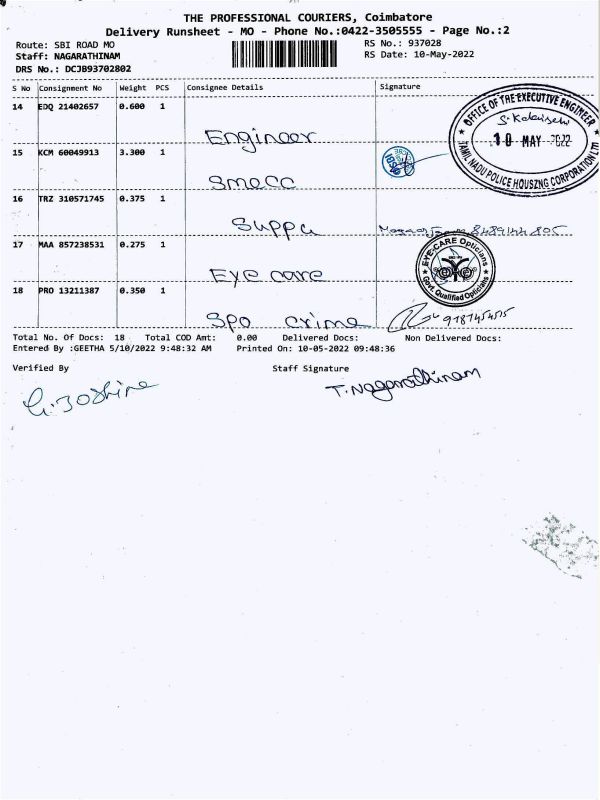 THE PROFESSIONAL COURIERS, Coimbatore
Delivery Runsheet - MO - Phone No.:0422-3505555 - Page No.:2
Route: SBI ROAD MO
RS No.: 937028
Staff: NAGARATHINAM
RS Date: 10-May-2022
DRS No.: DCJB93702802
S No Consignment No Weight PCS Consignee Details Signature
14 EDQ 21402657 0.600 1
Engineer
OFFICE OF THE EXECUTIVE ENGINEER
10 MAY 2022
TAMIL NADU POLICE HOUSZNG CORPORATION LTD
15 KCM 60049913 3.300 1
Smecc
16 TRZ 310571745 0.375 1
Suppu
8489144805
17 MAA 857238531 0.275 1
Eye care
EYE-CARE Opticians
Govt. Qualified Opticians
18 PRO 13211387 0.350 1
Spo crime
Total No. Of Docs: 18 Total COD Amt: 0.00 Delivered Docs: Non Delivered Docs:
Entered By :GEETHA 5/10/2022 9:48:32 AM Printed On: 10-05-2022 09:48:36
Verified By Staff Signature
T. Nagarathinam